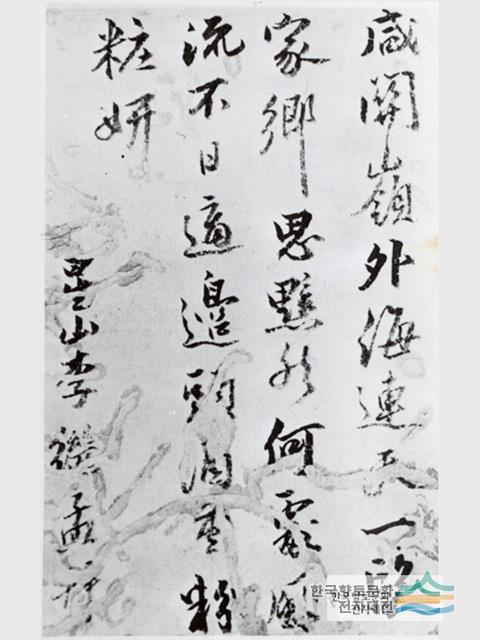 咸關嶺外海連天一望
家鄉思黯然何處風
流不日適邊頭淚重粉
粧妍
星山李
한국향토문화
전자대전